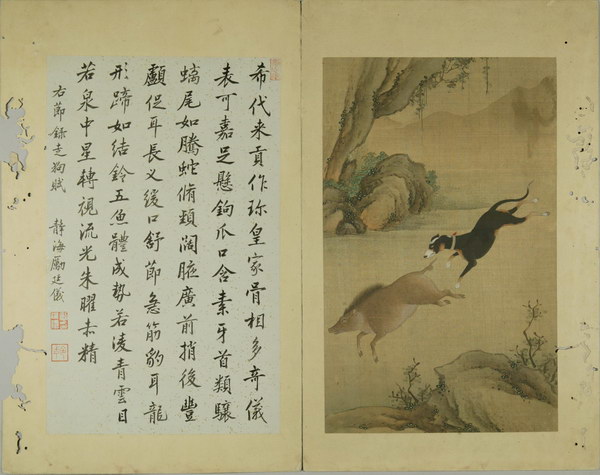 希代来貢作珍皇家骨相多奇儀
表可嘉足懸鉤爪口含素牙首類驤
螭尾如騰蛇脩頸闊腋廣前捎後豐
顱促耳長叉緩口舒節急筋豹耳龍
形蹄如結鈴五魚體成勢若凌青雲目
若泉中星轉視流光朱曜赤精
右節錄走狗賦 靜海勵廷儀